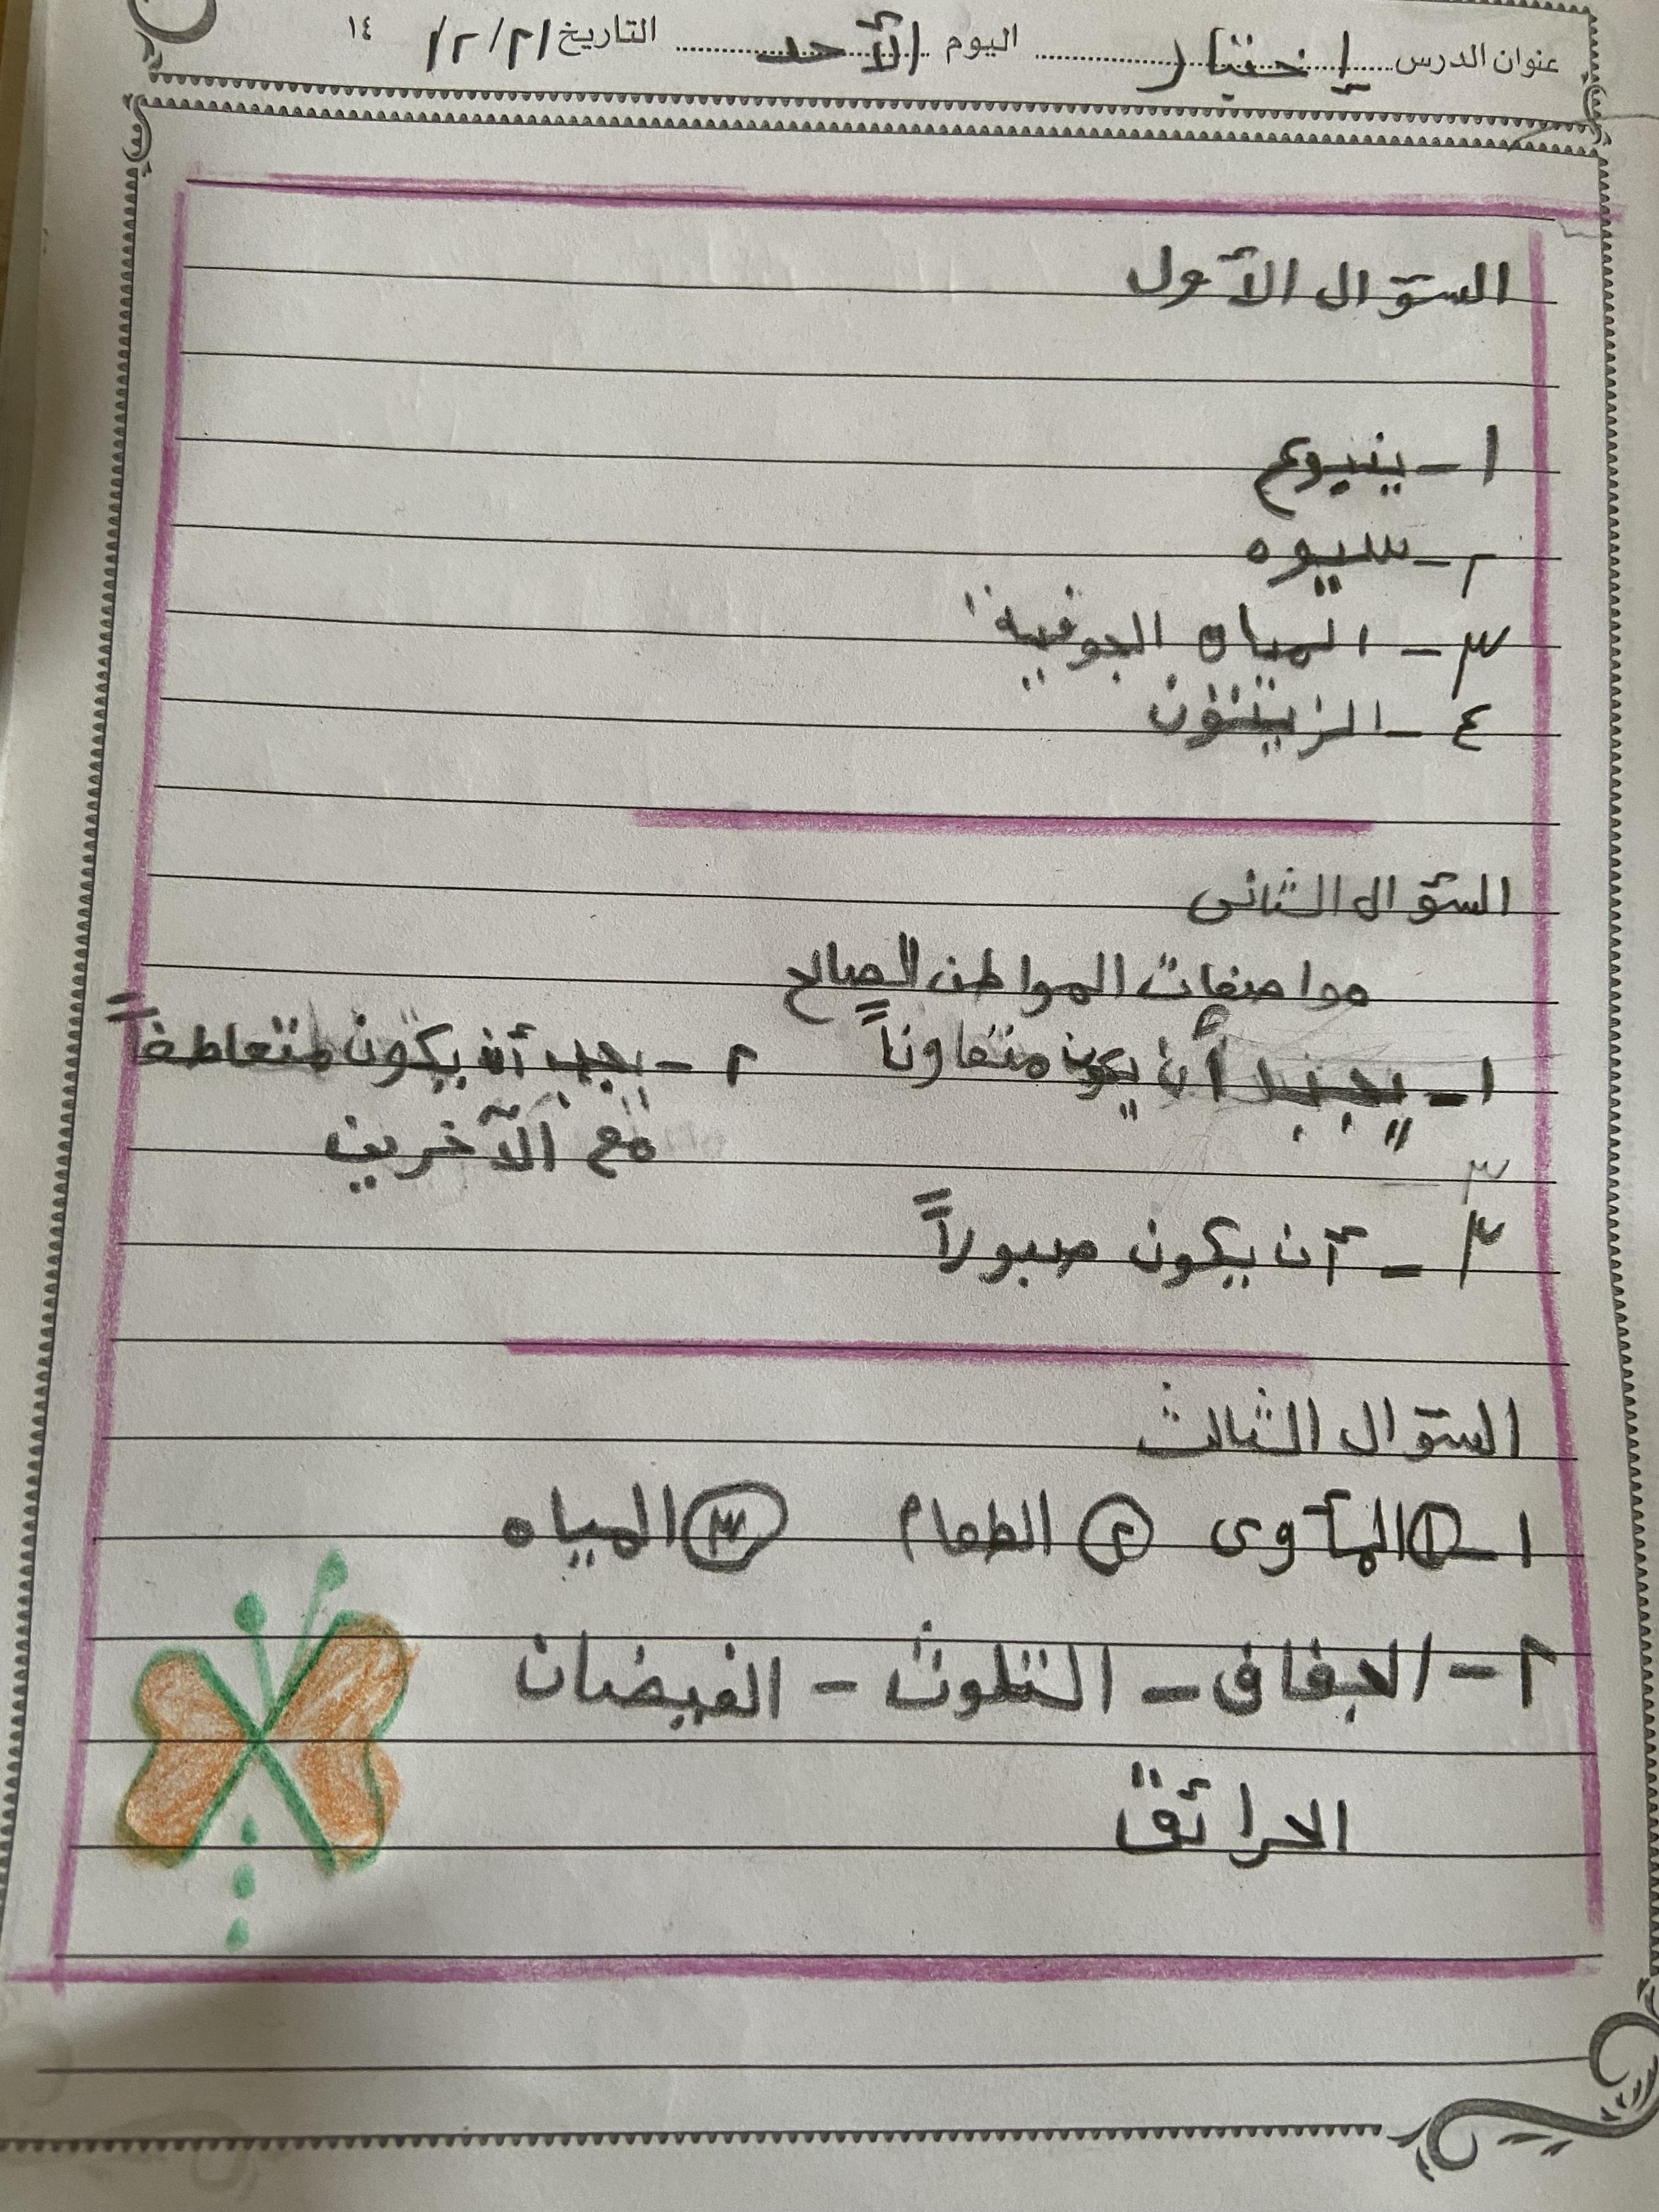 عنوان الدرس إختبار اليوم الأحد التاريخ ٢١/٢/ ١٤
السؤال الأول
١ - ينبوع
٢ - سيوه
٣ - المياه الجوفية
٤ - الزيتون
السؤال الثانى
مواصفات المواطن الصالح
١ - يجب أن يكون متعاوناً ٢ - يجب أن يكون متعاطفاً
مع الآخرين
٣ -
٣ - أن يكون صبوراً
السؤال الثالث
١ - ① المأوى ② الطعام ③ المياه
٢ - الجفاف - التلوث - الفيضان
الحرائق